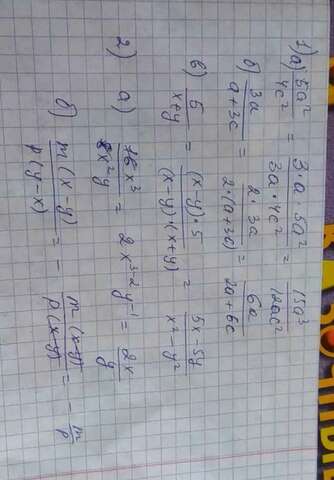 1) а) 5a²/4c² = 3·a·5a²/3a·4c² = 15a³/12ac²
б) 3a/a+3c = 2·3a/2·(a+3c) = 6a/2a+6c
в) 5/x+y = (x-y)·5/(x-y)·(x+y) = 5x-5y/x²-y²
2) а) 16x³/8x²y = 2x³⁻²y⁻¹ = 2x/y
б) m(x-y)/p(y-x) = - m(x-y)/p(x-y) = - m/p